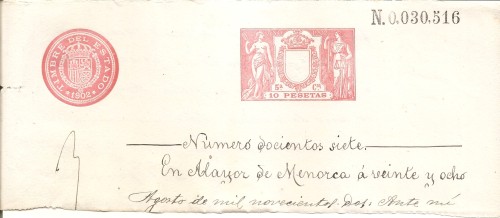 N.0.030.516
TIMBRE DEL ESTADO
1902
5ª Cª
10 PESETAS
Número docientos siete.
En Alayor de Menorca á veinte y ocho
Agosto de mil novecientos dos: Ante mí